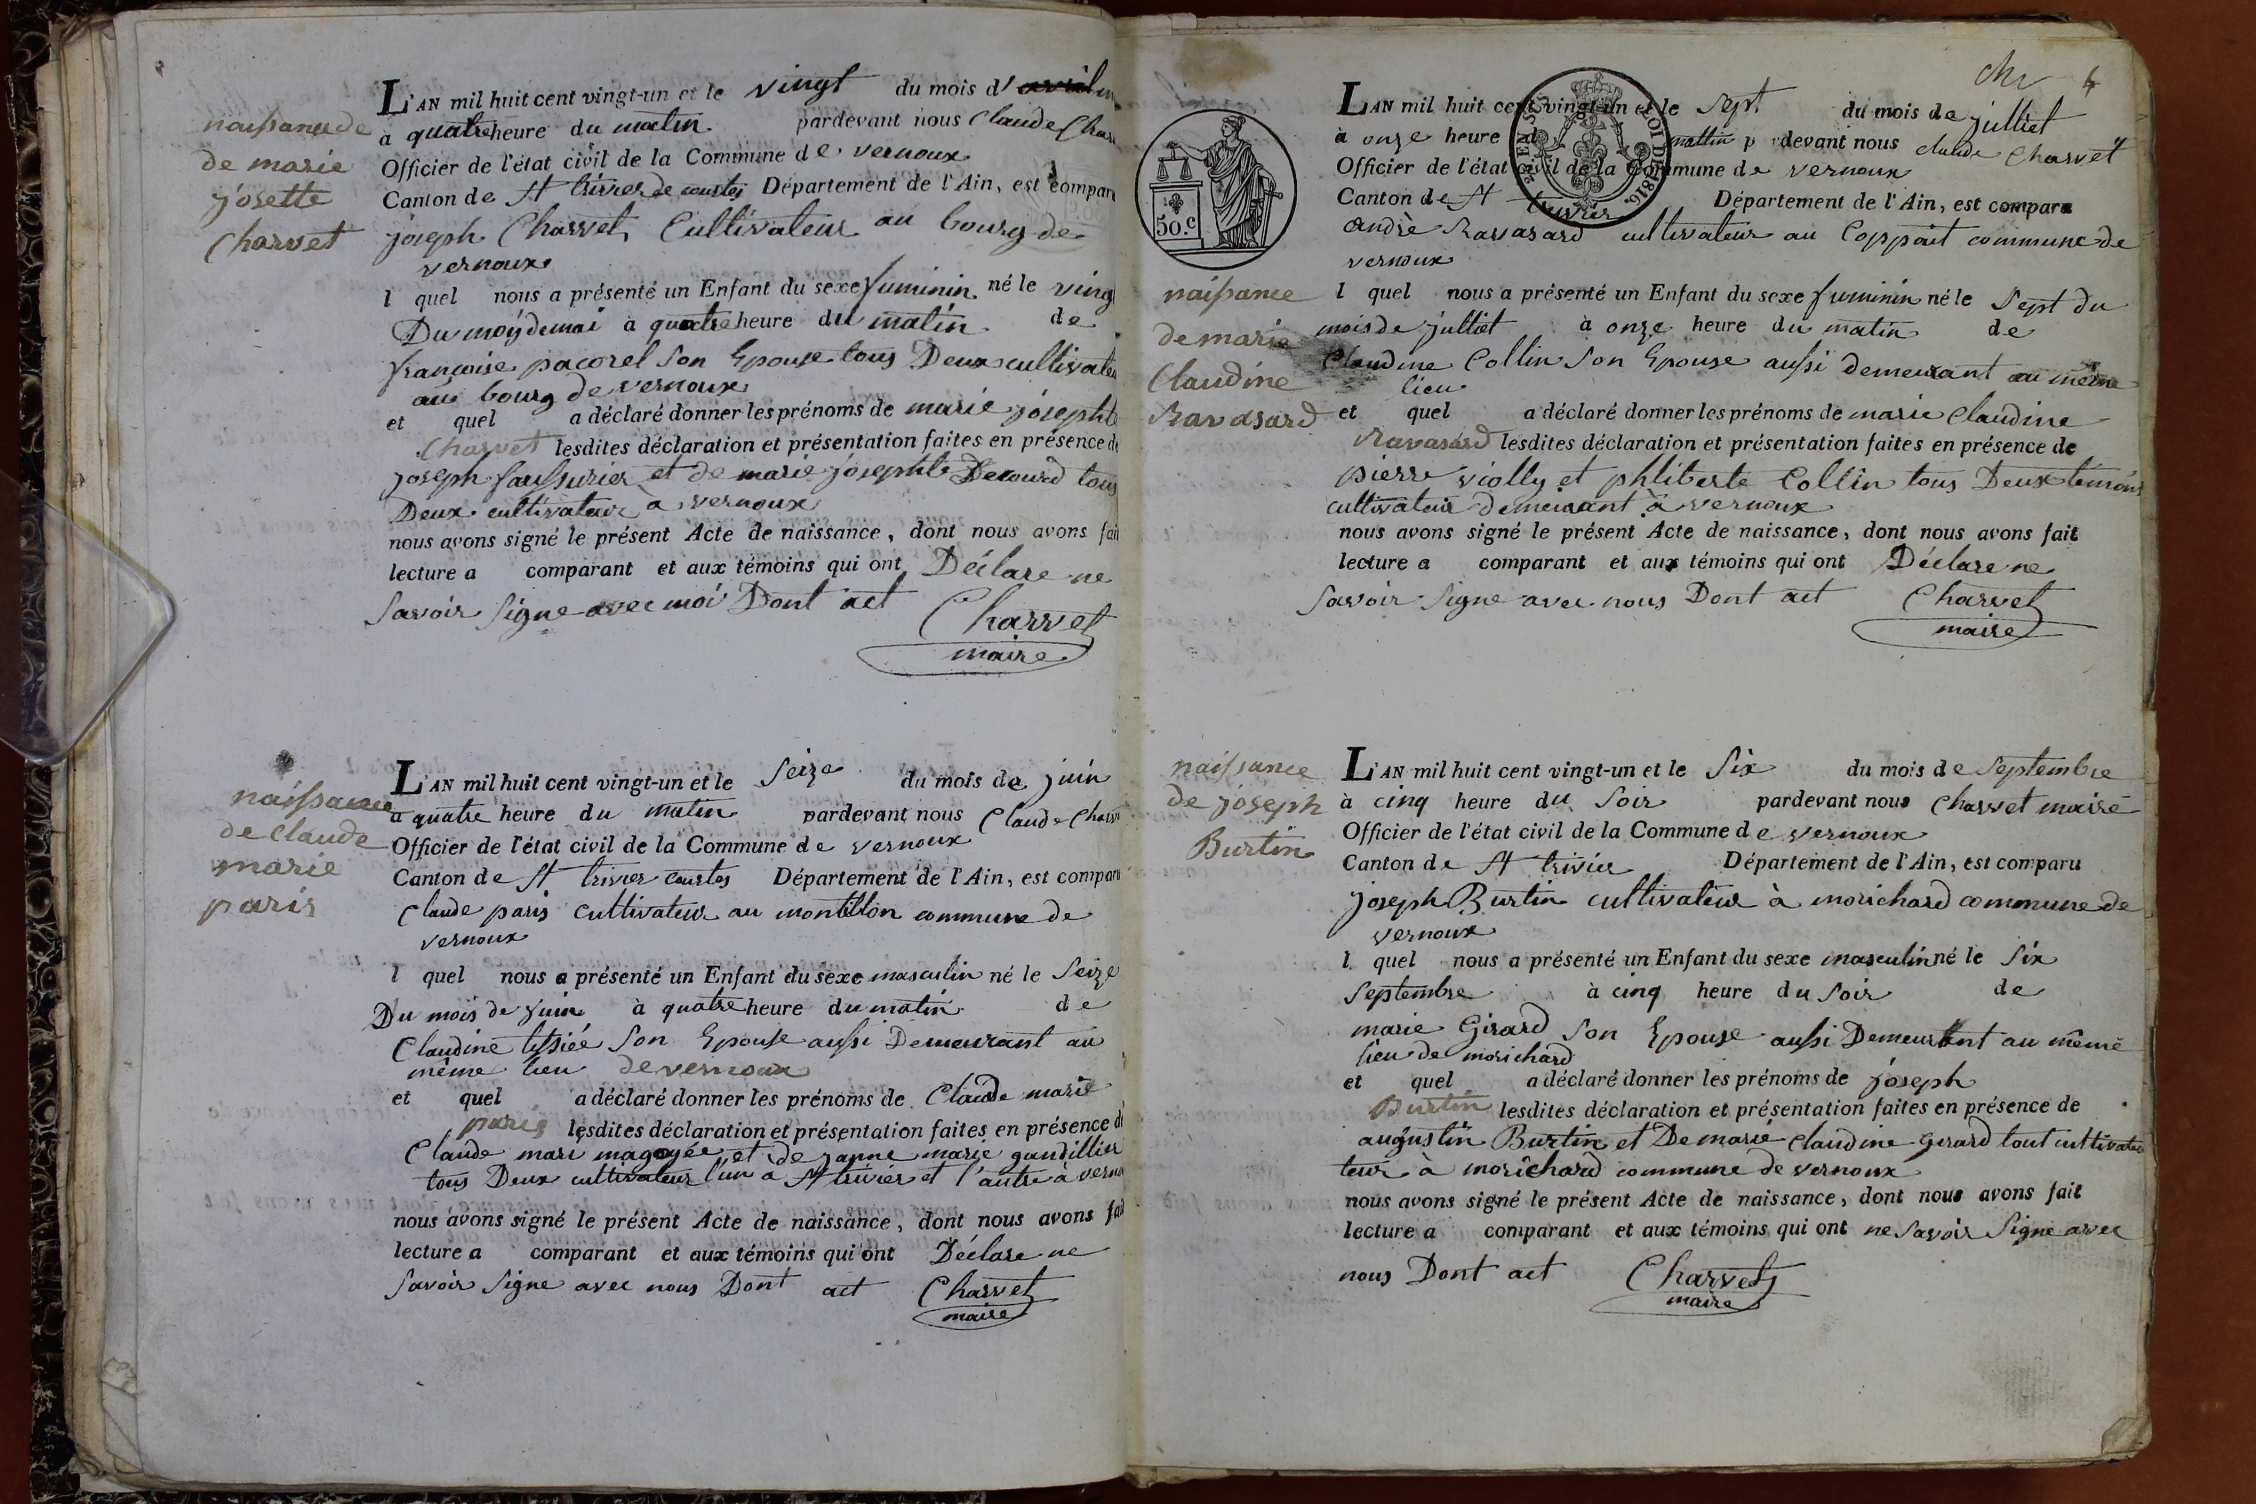 naissance de
de marie
josette
Charvet
L'AN mil huit cent vingt-un et le vingt du mois d'
à quatre heure du matin pardevant nous Claude
Officier de l'état civil de la Commune de vernoux
Canton de St trivier de courtes Département de l'Ain, est compar
joseph Charvet, Cultivateur au bourg de
vernoux
l quel nous a présenté un Enfant du sexe fuminin né le ving
Du moÿ de mai à quatre heure du matin de
francoise pacorel son Epouse tous Deux
au bourg de vernoux
et quel a déclaré donner les prénoms de marie
Charvet lesdites déclaration et présentation faites en présence de
joseph et de marie tous
Deux cultivateur à vernoux
nous avons signé le présent Acte de naissance, dont nous avons fait
lecture a comparant et aux témoins qui ont Déclare ne
savoir signe avec moi Dont act Charvet
maire
naissance
de Claude
marie
paris
L'AN mil huit cent vingt-un et le seize du mois de juin
à quatre heure du matin pardevant nous Claude
Officier de l'état civil de la Commune de vernoux
Canton de St trivier courtes Département de l'Ain, est compar
Claude paris cultivateur au montillon commune de
vernoux
l quel nous a présenté un Enfant du sexe masculin né le seize
Du mois de juin à quatre heure du matin de
Claudine son Epouse aussi Demeurant au
même lieu de vernoux
et quel a déclaré donner les prénoms de Claude marie
paris lesdites déclaration et présentation faites en présence de
Claude mari et de janne marie gandillier
tous Deux cultivateur l'un a St trivier et l'autre à
nous avons signé le présent Acte de naissance, dont nous avons fait
lecture a comparant et aux témoins qui ont Déclare ne
savoir signe avec nous Dont act Charvet
maire
50.c
LOI DE 1816.
naissance
de marie
Claudine
Ravasard
L'AN mil huit cent vingt-un et le sept du mois de julliet
à onze heure d mattin p devant nous claude Charvet
Officier de l'état civil de la Commune de vernoux
Canton de St trivier Département de l'Ain, est compara
andrè Ravasard cultivateur au Coppait commune de
vernoux
l quel nous a présenté un Enfant du sexe fuminin né le sept du
mois de julliet à onze heure du matin de
Claudine Collin son Epouse aussi demeurant au même
lieu
et quel a déclaré donner les prénoms de marie Claudine
Ravasard lesdites déclaration et présentation faites en présence de
pierre violly et phliberte Collin tous Deux témoins
cultivateur demeurant à vernoux
nous avons signé le présent Acte de naissance, dont nous avons fait
lecture a comparant et aux témoins qui ont Déclare ne
savoir signe avec nous Dont act Charvet
maire
naissance
de joseph
Burtin
L'AN mil huit cent vingt-un et le six du mois de septembre
à cinq heure du soir pardevant nous Charvet maire
Officier de l'état civil de la Commune de vernoux
Canton de St trivier Département de l'Ain, est comparu
joseph Burtin cultivateur à morichard commune de
vernoux
l quel nous a présenté un Enfant du sexe masculin né le six
septembre à cinq heure du soir de
marie Girard son Epouse aussi Demeurant au même
lieu de morichard
et quel a déclaré donner les prénoms de joseph
Burtin lesdites déclaration et présentation faites en présence de
augustin Burtin et De marie claudine Gerard tout cultivateu
teur à morichard commune de vernoux
nous avons signé le présent Acte de naissance, dont nous avons fait
lecture a comparant et aux témoins qui ont ne savoir signe avec
nous Dont act Charvet
maire